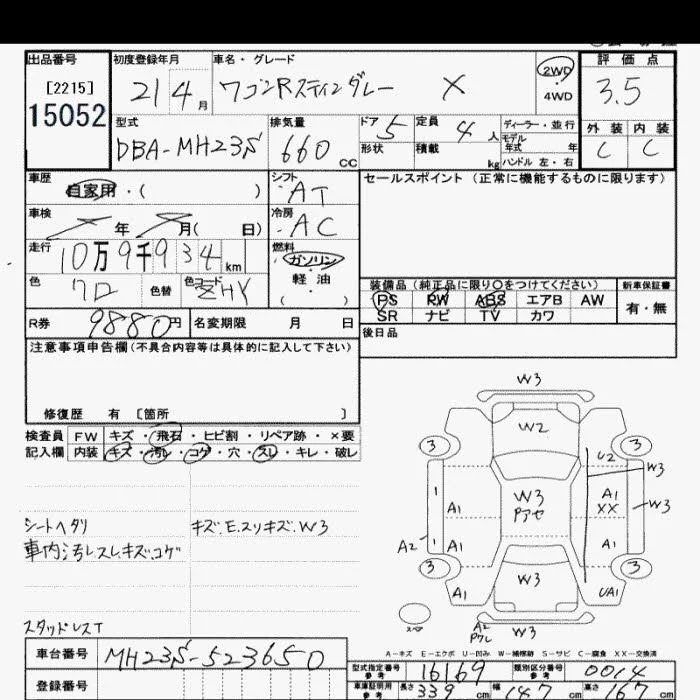 出品番号 初度登録年月 車名・グレード 評価点
[2215] 21 4月 ワゴンRスティングレー X 2WD・4WD 3.5
15052
型式 排気量 ドア 5 定員 4人 ディーラー・並行 外装 内装
DBA-MH23S 660cc 形状 積載 kg モデル年式 年 C C
ハンドル 左・右
車歴 シフト セールスポイント (正常に機能するものに限ります)
自家用・( ) AT
車検 冷房
年 月( 日) AC
走行 燃料
10万9千934km ガソリン
軽油
( )
色 色替 色コード 装備品 (純正品に限り〇をつけてください) 新車保証書
クロ ZHY PS PW ABS エアB AW 有・無
SR ナビ TV カワ
R券 9880円 名変期限 月 日 後日品
注意事項申告欄(不具合内容等は具体的に記入して下さい)
修復歴 有 [箇所 ]
検査員 FW キズ・飛石・ヒビ割・リペア跡・×要
記入欄 内装 キズ・汚レ・コゲ・穴・スレ・キレ・破レ
W3
W2
3 3
U2
W3
1 A1 W3 A1 W3
Pアセ XX
A2 1 A1 A1
3 3
W3
A1 UA1
スペア
A2 W3
シートヘタリ キズ.E.スリキズ.W3
車内汚レスレ.キズ.コゲ
スタッドレスT
A-キズ E-エクボ U-凹み W-補修跡 S-サビ C-腐食 XX-交換済
車台番号 MH23S-523650
型式指定番号 参考 16169 類別区分番号 参考 0014
登録番号
車庫証明用 参考 長さ 339cm 幅 147cm 高さ 167cm